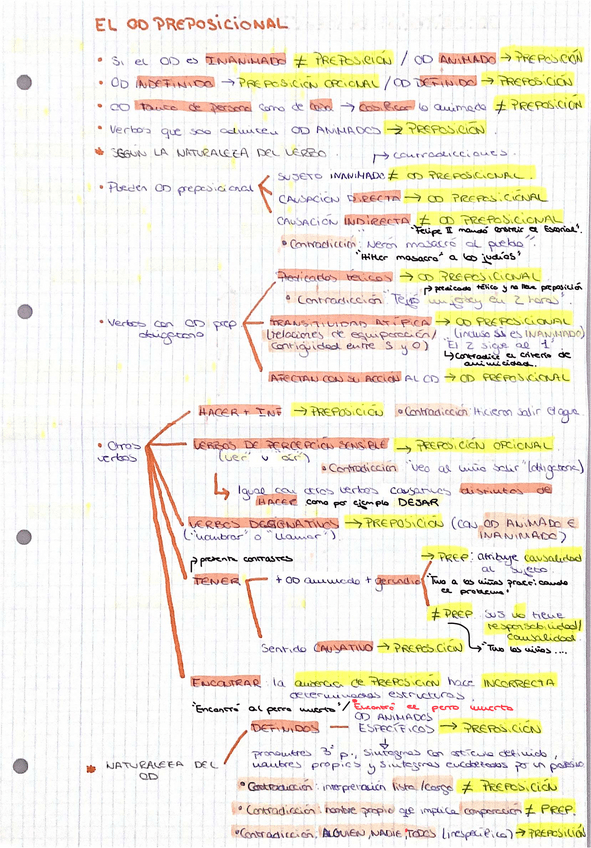 EL OD PREPOSICIONAL
• Si el OD es INANIMADO ≠ PREPOSICIÓN / OD ANIMADO → PREPOSICIÓN
• OD INDEFINIDO → PREPOSICIÓN OPCIONAL / OD DEFINIDO → PREPOSICIÓN
• OD tanto de persona como de cosa → cosificar lo animado ≠ PREPOSICIÓN
• Verbos que solo admiten OD ANIMADOS → PREPOSICIÓN.
* SEGÚN LA NATURALEZA DEL VERBO.
→ contradicciones.
• Pueden OD preposicional
SUJETO INANIMADO ≠ OD PREPOSICIONAL.
CAUSACIÓN DIRECTA → OD PREPOSICIONAL
CAUSACIÓN INDIRECTA ≠ OD PREPOSICIONAL
"Felipe II mandó construir el Escorial".
• Contradicción: Nerón masacró al pueblo".
"Hitler masacró a los judíos"
• Verbos con OD prep obligatorio
Predicados télicos → OD PREPOSICIONAL
→ predicado télico y no lleva preposición
• Contradicción "Tejió un jersey en 2 horas"
TRANSITIVIDAD ATÍPICA → OD PREPOSICIONAL
(relaciones de equiparación/ (incluso si es INANIMADO)
contigüidad entre S y O) "El 2 sigue al 1"
↳ Contradice el criterio de
animicidad.
AFECTAN CON SU ACCIÓN AL OD → OD PREPOSICIONAL
• Otros verbos
HACER + INF → PREPOSICIÓN • Contradicción: Hicieron salir el agua.
VERBOS DE PERCEPCIÓN SENSIBLE → PREPOSICIÓN OPCIONAL
("ver" u "oír")
• Contradicción "Veo al niño salir" (obligatoria)
↳ Igual con otros verbos causativos distintos de
HACER como por ejemplo DEJAR
VERBOS DESIGNATIVOS → PREPOSICIÓN (CON OD ANIMADO E
("nombrar" o "llamar") INANIMADO)
→ presenta contrastes
TENER
+ OD animado + gerundio
→ PREP: atribuye causalidad
al sujeto
"Tuvo a los niños practicando
el problema"
≠ PREP. SUJ no tiene
responsabilidad/
causalidad.
→ "Tuvo los niños ....
Sentido CAUSATIVO → PREPOSICIÓN
ENCONTRAR: la ausencia de PREPOSICIÓN hace INCORRECTA
determinadas estructuras.
"Encontró al perro muerto" / "Encontró el perro muerto
* NATURALEZA DEL OD
DEFINIDOS — OD ANIMADOS
ESPECÍFICOS → PREPOSICIÓN
pronombres 3ª p., sintagmas con artículo definido,
nombres propios y sintagmas encabezados por un posesivo
• Contradicción: interpretación lista/cargo ≠ PREPOSICIÓN
• Contradicción: nombre propio que implica comparación ≠ PREP.
• Contradicción: ALGUIEN, NADIE, TODOS (inespecífico) → PREPOSICIÓN